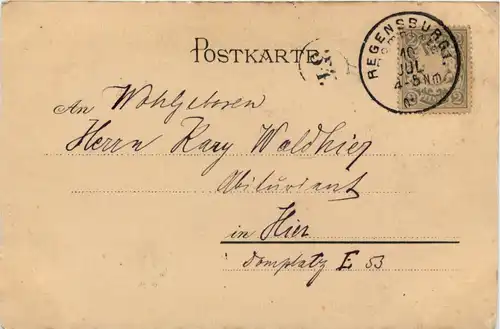 POSTKARTE
REGENSBURG I.
10
JUL
4-5 NM
2
2
An Wohlgeboren
Herrn Karg Waldhier
Abiturient
in Hier
Domplatz E 53